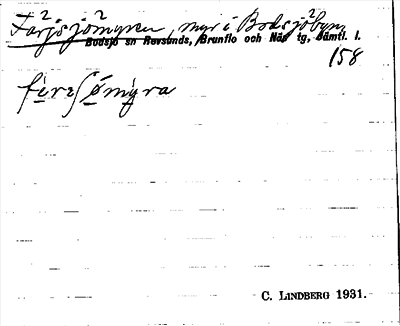 Färjsjömyren, myr i Bodsjöbyn,
Bodsjö sn Revsunds, Brunflo och Näs tg, Jämtl. l.
158
C. LINDBERG 1931.